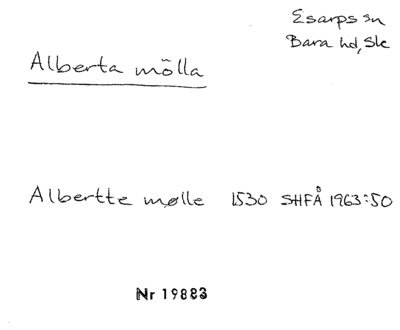 Esarps sn
Bara hd, Sk
Alberta mölla
Albertte mølle 1530 SHFÅ 1963:50
Nr 19883